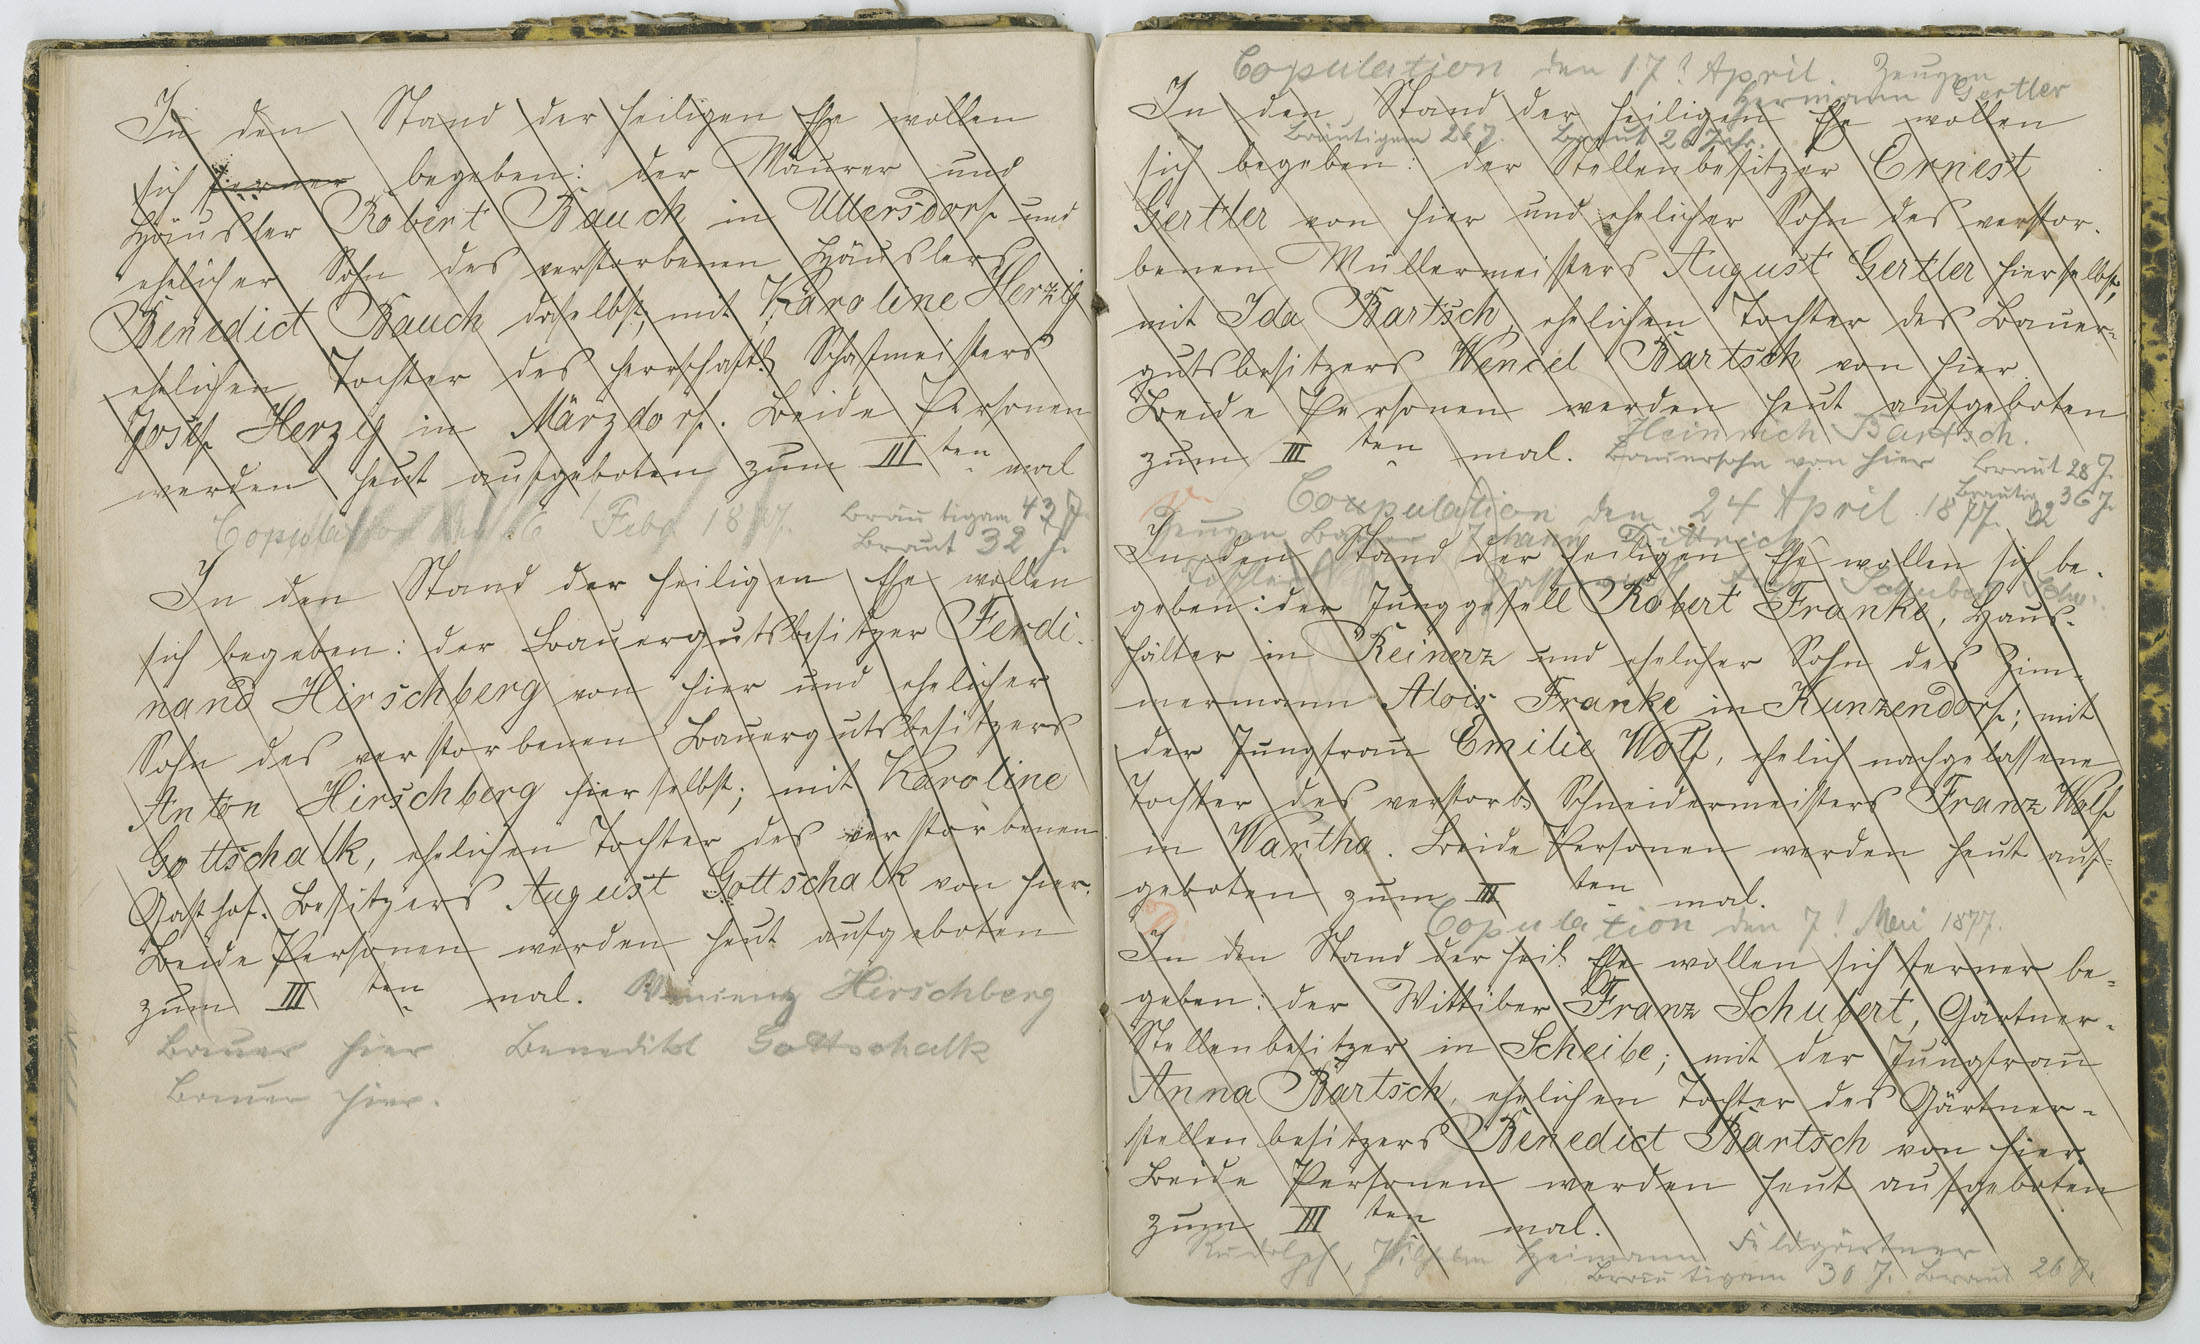 In den Stand der heiligen Ehe wollen
sich ferner begeben: der Maurer und
Häusler Robert Rauch in Ullersdorf und
ehelicher Sohn des verstorbenen Häuslers
Benedict Rauch daselbst; mit Karoline Herzig
ehelichen Tochter des herrschaftl. Schafmeisters
Josef Herzig in Märzdorf. Beide Personen
werden heut aufgeboten zum III ten mal
Copulation den 6 Febr. 1877. Bräutigam 43 J.
Braut 32 J.
In den Stand der heiligen Ehe wollen
sich begeben: der Bauergutsbesitzer Ferdi-
nand Hirschberg von hier und ehelicher
Sohn des verstorbenen Bauergutsbesitzers
Anton Hirschberg hierselbst; mit Karoline
Gottschalk, ehelichen Tochter des verstorbenen
Gasthof-Besitzers August Gottschalk von hier.
Beide Personen werden heut aufgeboten
zum III ten mal. Hirschberg
Bauer hier Benedikt Gottschalk
Bauer hier.
Copulation den 17! April. Zeugen
Hermann Gertler
In den Stand der heiligen Ehe wollen
Bräutigam 26 J. Braut 26 Jahr.
sich begeben: der Stellenbesitzer Ernest
Gertler von hier und ehelicher Sohn des verstor-
benen Müllermeisters August Gertler hierselbst;
mit Ida Bartsch, ehelichen Tochter des Bauer-
gutsbesitzers Wenzel Bartsch von hier.
Beide Personen werden heut aufgeboten
zum III ten mal. Heinrich Bartsch.
Bauersohn von hier Braut 28 J.
Bräutig 36 J.
Copulation den 24 April 1877.
Zeugen Bauer Johann Dittrich
In den Stand der heiligen Ehe wollen sich be-
Schubert
geben: der Junggesell Robert Franke, Haus-
hälter in Reinerz und ehelicher Sohn des Zim-
mermann Alois Franke in Kunzendorf; mit
der Jungfrau Emilie Wolf, ehelich nachgelassene
Tochter des verstorb. Schneidermeisters Franz Wolf
in Wartha. Beide Personen werden heut auf-
geboten zum III ten mal.
Copulation den 7! Mai 1877.
In den Stand der heil. Ehe wollen sich ferner be-
geben: der Wittiber Franz Schubert, Gärtner-
Stellenbesitzer in Scheibe; mit der Jungfrau
Anna Bartsch, ehelichen Tochter des Gärtner-
stellenbesitzers Benedict Bartsch von hier.
Beide Personen werden heut aufgeboten
zum III ten mal.
Rudolph, Wilhelm Heimann Feldgärtner
Bräutigam 30 J. Braut 26 J.